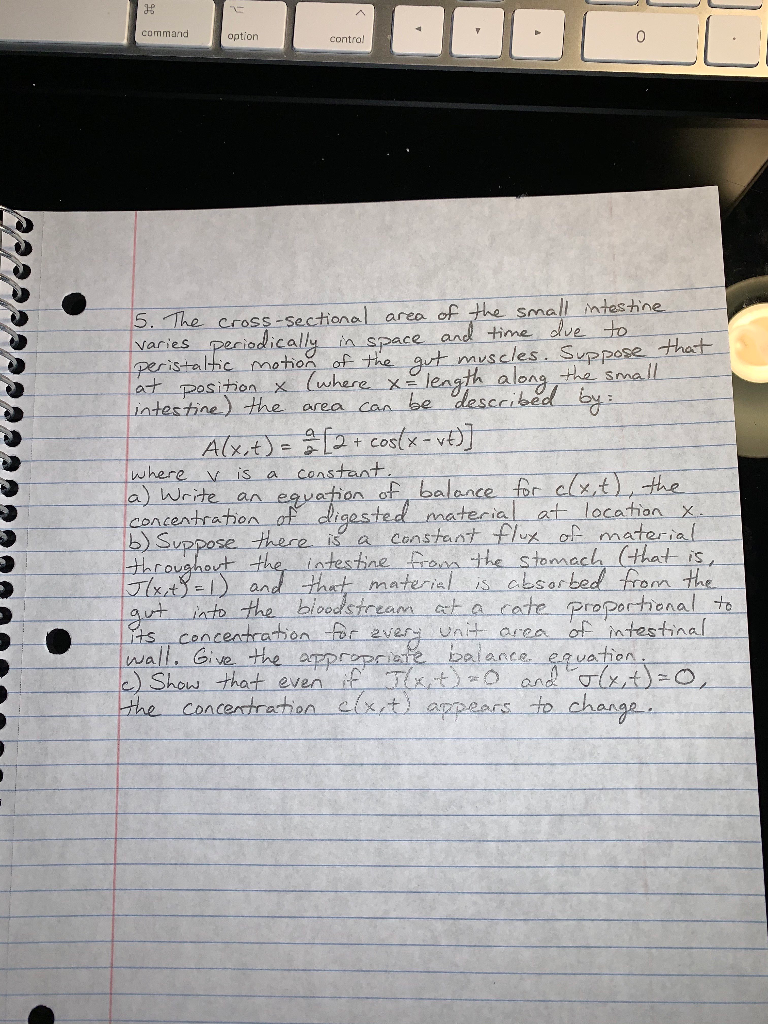 ⌘
command
⌥
option
^
control
◂
▾
▸
0
.
5. The cross-sectional area of the small intestine
varies periodically in space and time due to
peristaltic motion of the gut muscles. Suppose that
at position x (where x = length along the small
intestine) the area can be described by:
A(x,t) = a/2 [2 + cos(x - vt)]
where v is a constant.
a) Write an equation of balance for c(x,t), the
concentration of digested material at location x.
b) Suppose there is a constant flux of material
throughout the intestine from the stomach (that is,
J(x,t) = 1) and that material is absorbed from the
gut into the bloodstream at a rate proportional to
its concentration for every unit area of intestinal
wall. Give the appropriate balance equation.
c) Show that even if J(x,t) = 0 and σ(x,t) = 0,
the concentration c(x,t) appears to change.